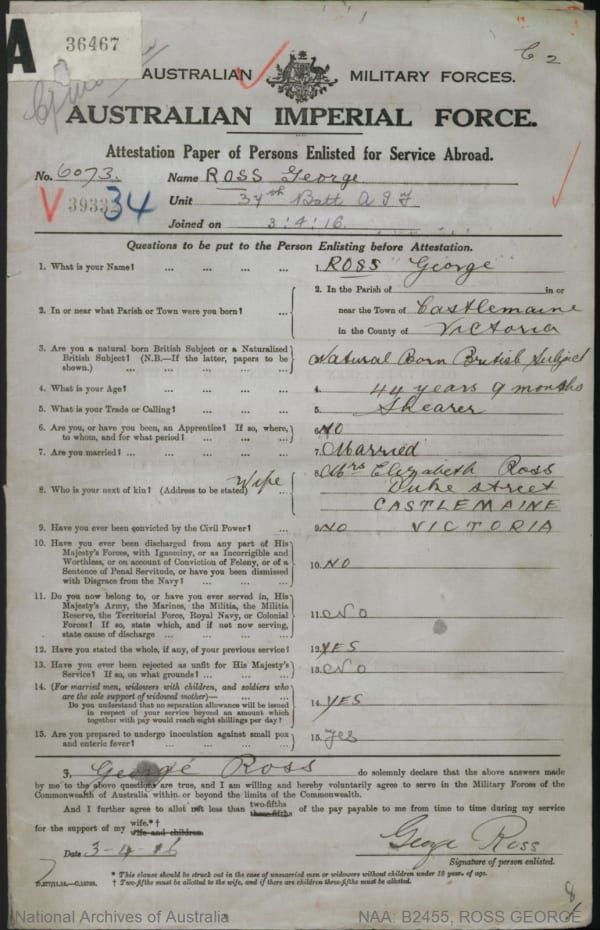 A
36467
C 2
AUSTRALIAN MILITARY FORCES.
AUSTRALIAN IMPERIAL FORCE.
Attestation Paper of Persons Enlisted for Service Abroad.
No. 6073. Name ROSS George
V 39332 34 Unit 37th Batt A I F
Joined on 3:4:16.
Questions to be put to the Person Enlisting before Attestation.
1. What is your Name? ... ... ... ... 1. ROSS George
2. In or near what Parish or Town were you born? ... 2. In the Parish of in or
near the Town of Castlemaine
in the County of Victoria
3. Are you a natural born British Subject or a Naturalized
British Subject? (N.B.—If the latter, papers to be
shown.) ... ... ... ... ... Natural Born British Subject
4. What is your Age? ... ... ... ... 4. 44 years 9 months
5. What is your Trade or Calling? ... ... ... 5. Shearer
6. Are you, or have you been, an Apprentice? If so, where,
to whom, and for what period? ... ... ... 6. NO
7. Are you married? ... ... ... ... 7. Married
8. Who is your next of kin? (Address to be stated) Wife 8. Mrs Elizabeth Ross
Duke Street
CASTLEMAINE
VICTORIA
9. Have you ever been convicted by the Civil Power? ... 9. NO
10. Have you ever been discharged from any part of His
Majesty's Forces, with Ignominy, or as Incorrigible and
Worthless, or on account of Conviction of Felony, or of a
Sentence of Penal Servitude, or have you been dismissed
with Disgrace from the Navy? ... ... ... 10. NO
11. Do you now belong to, or have you ever served in, His
Majesty's Army, the Marines, the Militia, the Militia
Reserve, the Territorial Force, Royal Navy, or Colonial
Forces? If so, state which, and if not now serving,
state cause of discharge ... ... ... ... 11. No
12. Have you stated the whole, if any, of your previous service? 12. YES
13. Have you ever been rejected as unfit for His Majesty's
Service? If so, on what grounds? ... ... ... 13. No
14. (For married men, widowers with children, and soldiers who
are the sole support of widowed mother)—
Do you understand that no separation allowance will be issued
in respect of your service beyond an amount which
together with pay would reach eight shillings per day? 14. YES
15. Are you prepared to undergo inoculation against small pox
and enteric fever? ... ... ... ... 15. yes
I, George Ross do solemnly declare that the above answers made
by me to the above questions are true, and I am willing and hereby voluntarily agree to serve in the Military Forces of the
Commonwealth of Australia within or beyond the limits of the Commonwealth.
And I further agree to allot not less than two-fifths three-fifths of the pay payable to me from time to time during my service
for the support of my wife.*† wife and children.
Date 3-4-16 George Ross
Signature of person enlisted.
* This clause should be struck out in the case of unmarried men or widowers without children under 18 year. of age.
† Two-fifths must be allotted to the wife, and if there are children three-fifths must be allotted.
National Archives of Australia NAA: B2455, ROSS GEORGE